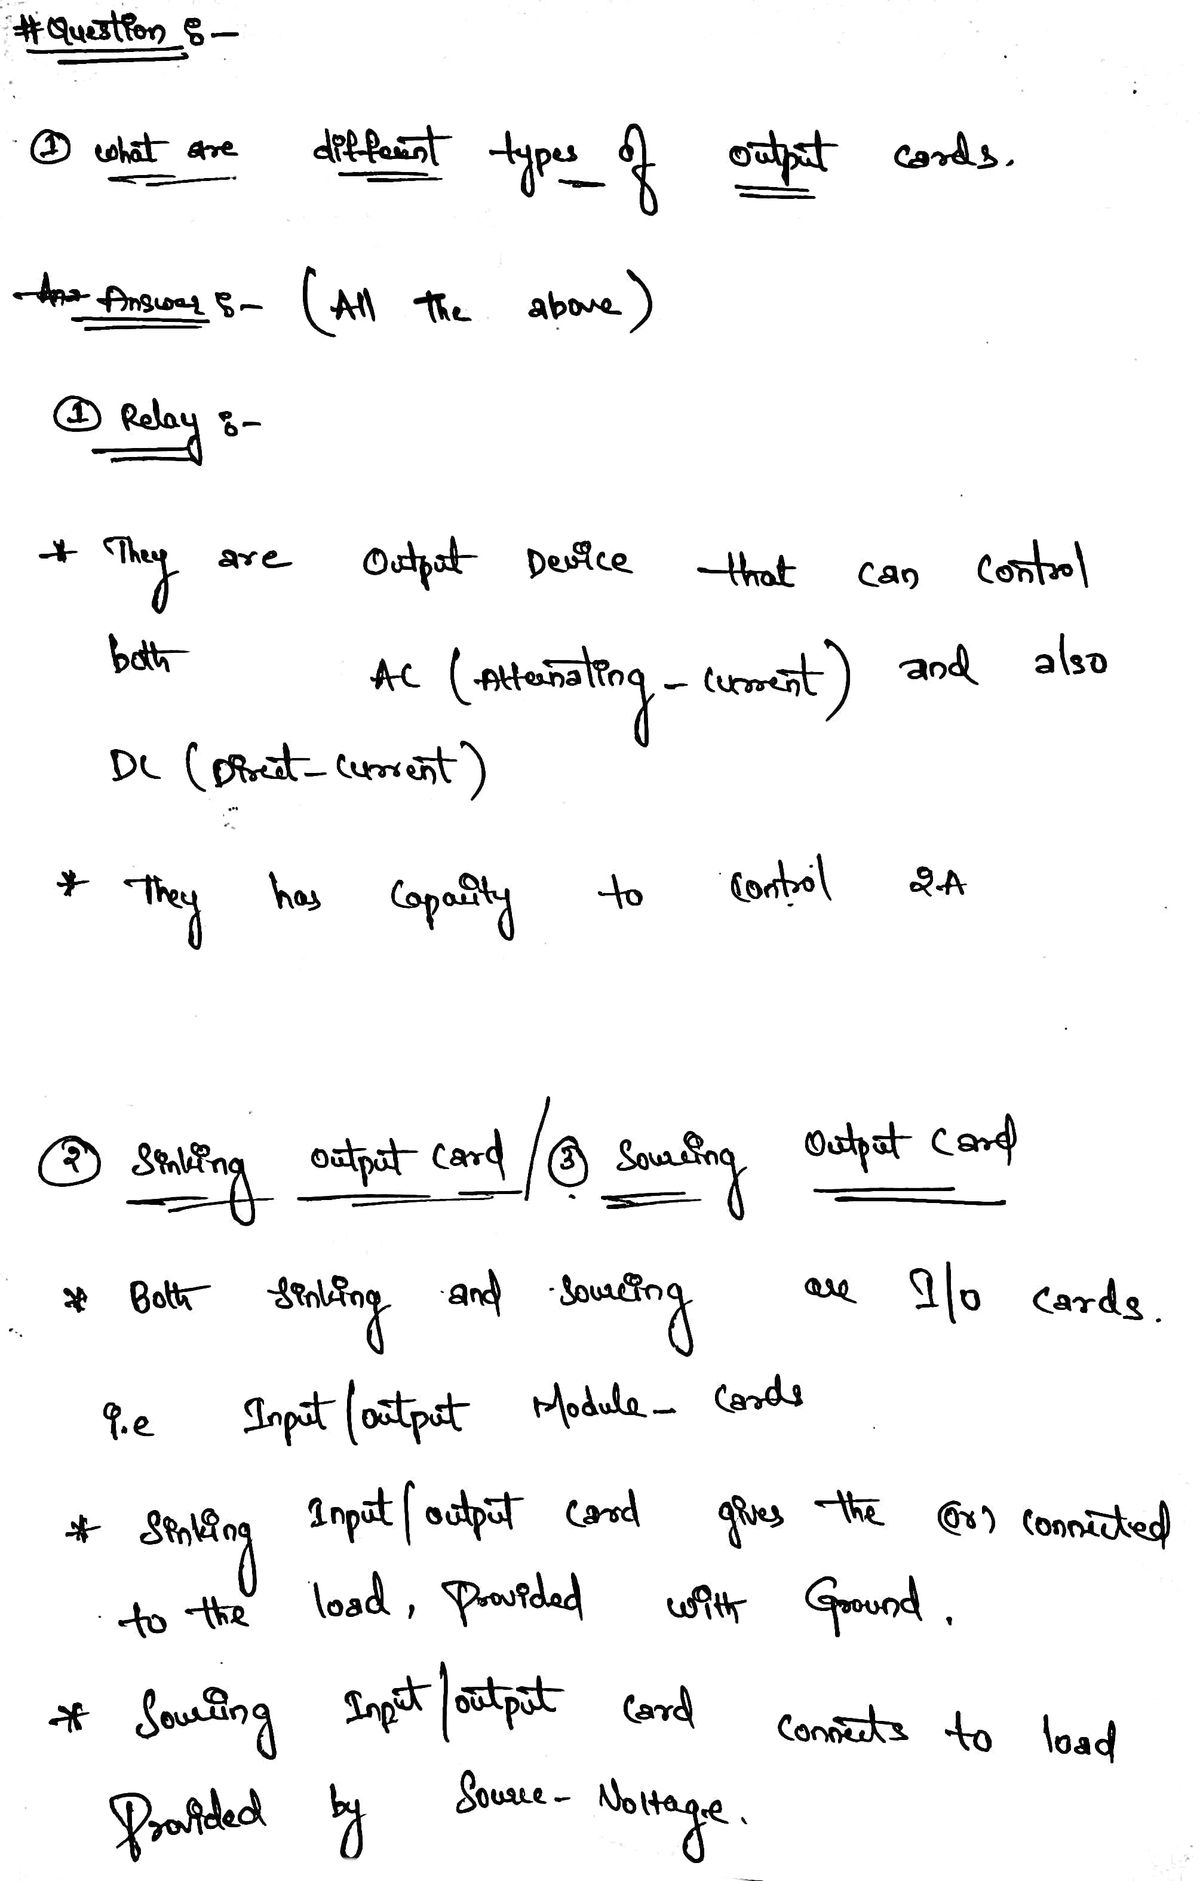 # Question :-
① what are different types of output cards.
Answer :- (All the above)
① Relay :-
* They are Output Device that can control
both AC (Alternating-current) and also
DC (Direct-current)
* They has Capacity to control 2A
② Sinking output card / ③ Sourcing Output Card
* Both Sinking and Sourcing are I/O cards.
i.e Input/output Module- cards
* Sinking Input/output card gives the (or) connected
to the load, Provided with Ground.
* Sourcing Input/output card connects to load
Provided by Source- Voltage.